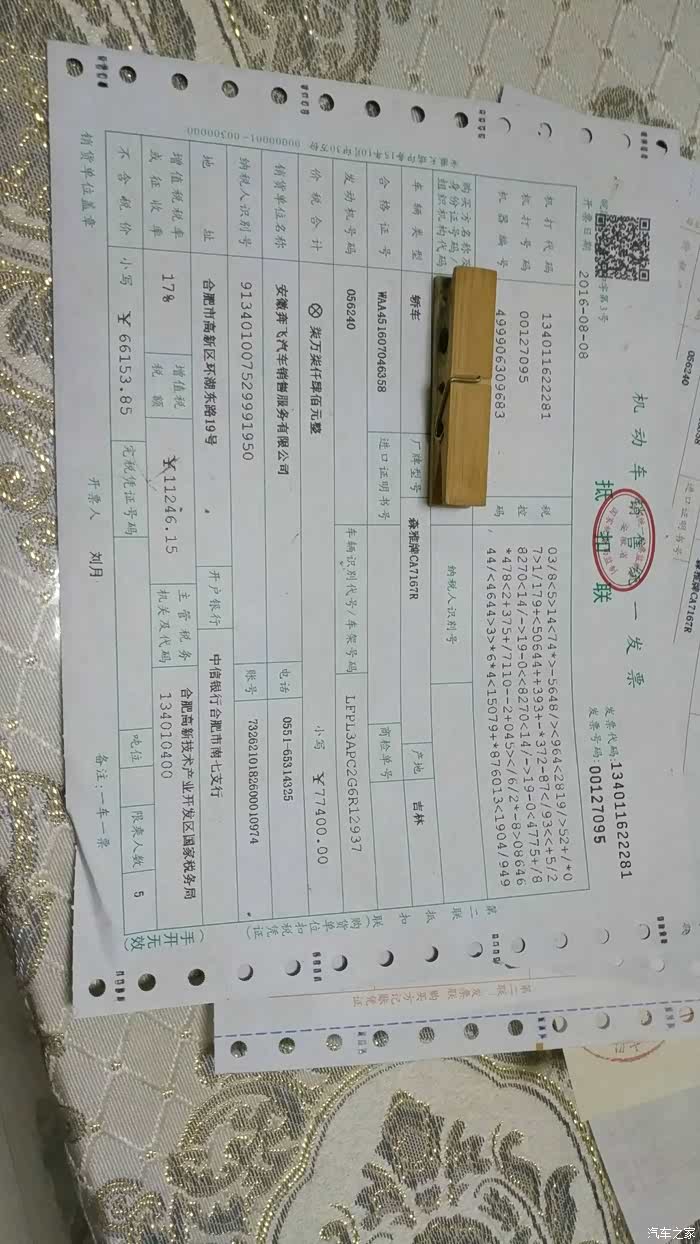 机动车销售统一发票
抵扣联
发票代码134011622281
发票号码00127095
开票日期 2016-08-08
机打代码 134011622281
机打号码 00127095
机器编号 499906309683
税控码
03/8<5>14<74*>-5648/><964<2819/>52+/*0
7>1/179+<50644++393+-*372-87</93<<+5/2
8270<14/->19-0<<8270<14/->19-0<4775+/8
*478<2+375+/7110--2+045></6/2*-8>08646
44/<4644>3>*6*4<15079+*876013<1904/949
购买方名称及
身份证号码/
组织机构代码
纳税人识别号
车辆类型 轿车 厂牌型号 森雅牌CA7167R 产地 吉林
合格证号 WAA451607046358 进口证明书号 商检单号
发动机号码 056240 车辆识别代号/车架号码 LFPL3APC2G6R12937
价税合计 ⊗柒万柒仟肆佰元整 小写 ￥77400.00
销货单位名称 安徽奔飞汽车销售服务有限公司 电话 0551-65314325
纳税人识别号 913401007529991950 账号 7326210182600010974
地址 合肥市高新区环湖东路19号 开户银行 中信银行合肥市南七支行
增值税税率
或征收率 17% 增值税
税额 ￥11246.15 主管税务
机关及代码 合肥高新技术产业开发区国家税务局
134010400
不含税价 小写 ￥66153.85 完税凭证号码 吨位 限乘人数 5
销货单位盖章 开票人 刘月 备注:一车一票
第二联 抵扣联(购货单位扣税凭证)
(手开无效)
00000001-00300000
第二联 发票联 购买方记账凭证
056240
进口证明书号
森雅牌CA7167R
汽车之家